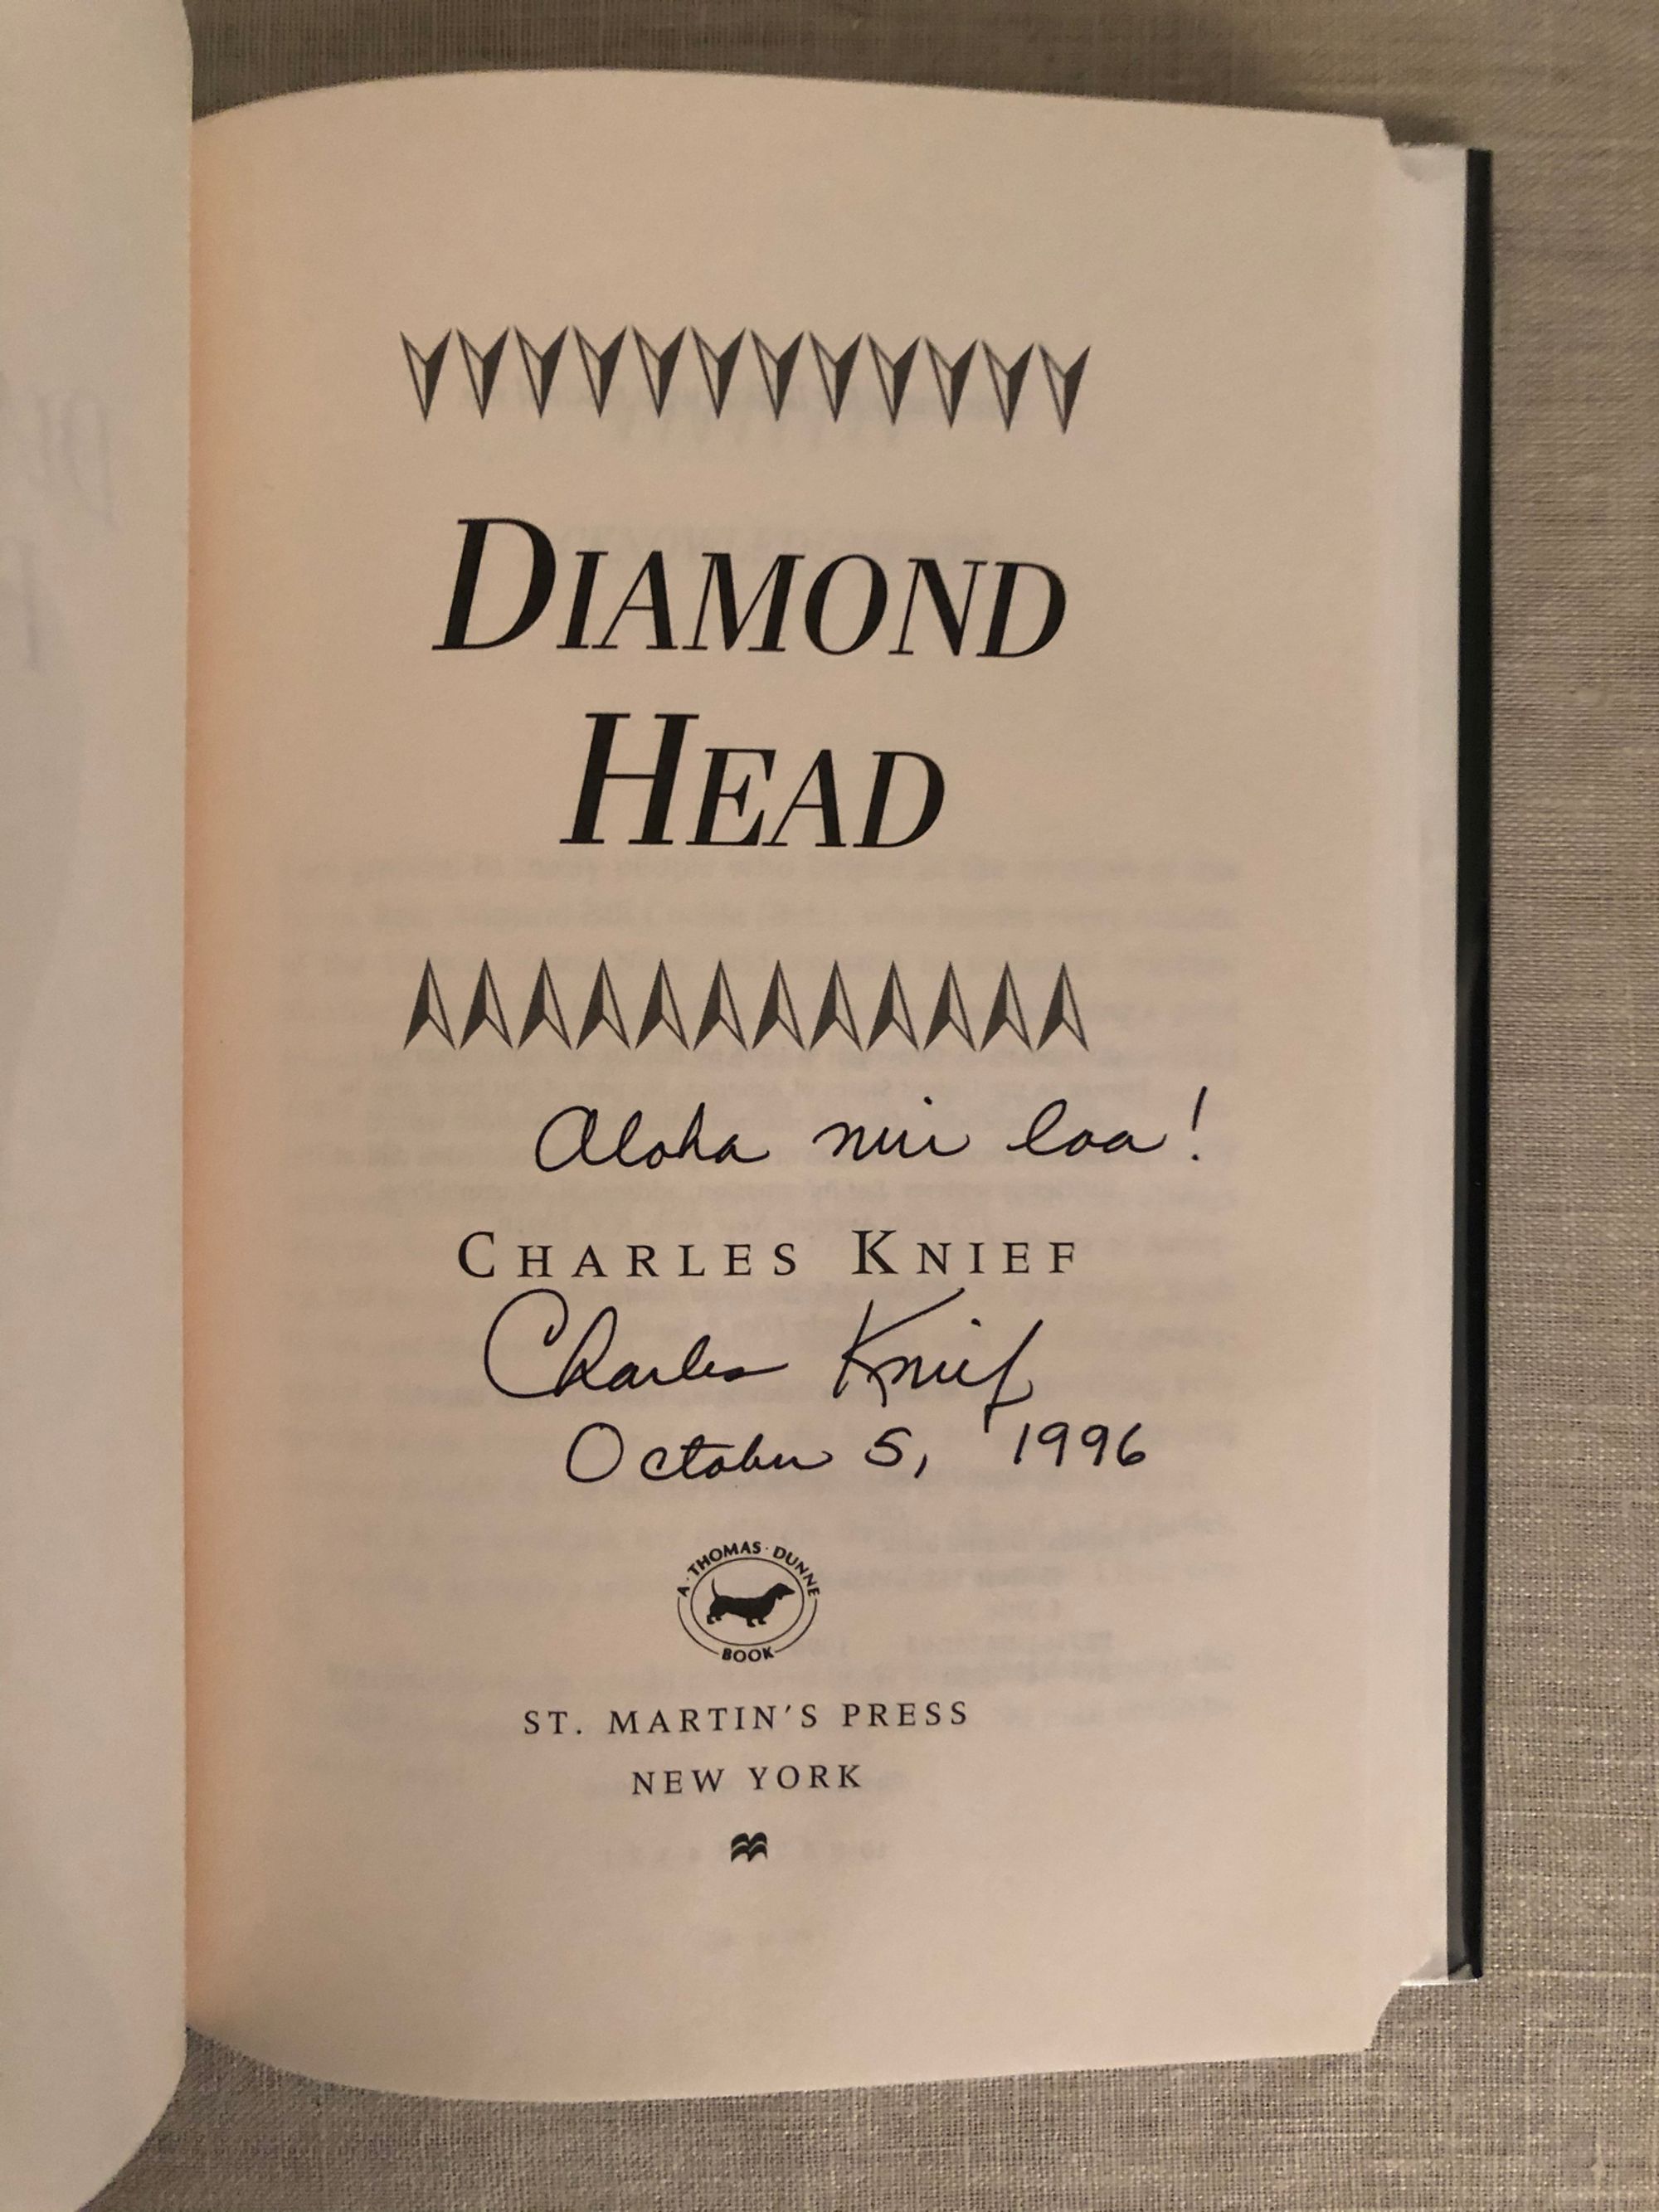 DIAMOND
HEAD
Aloha nui loa!
CHARLES KNIEF
Charles Knief
October 5, 1996
A · THOMAS · DUNNE
BOOK
ST. MARTIN'S PRESS
NEW YORK